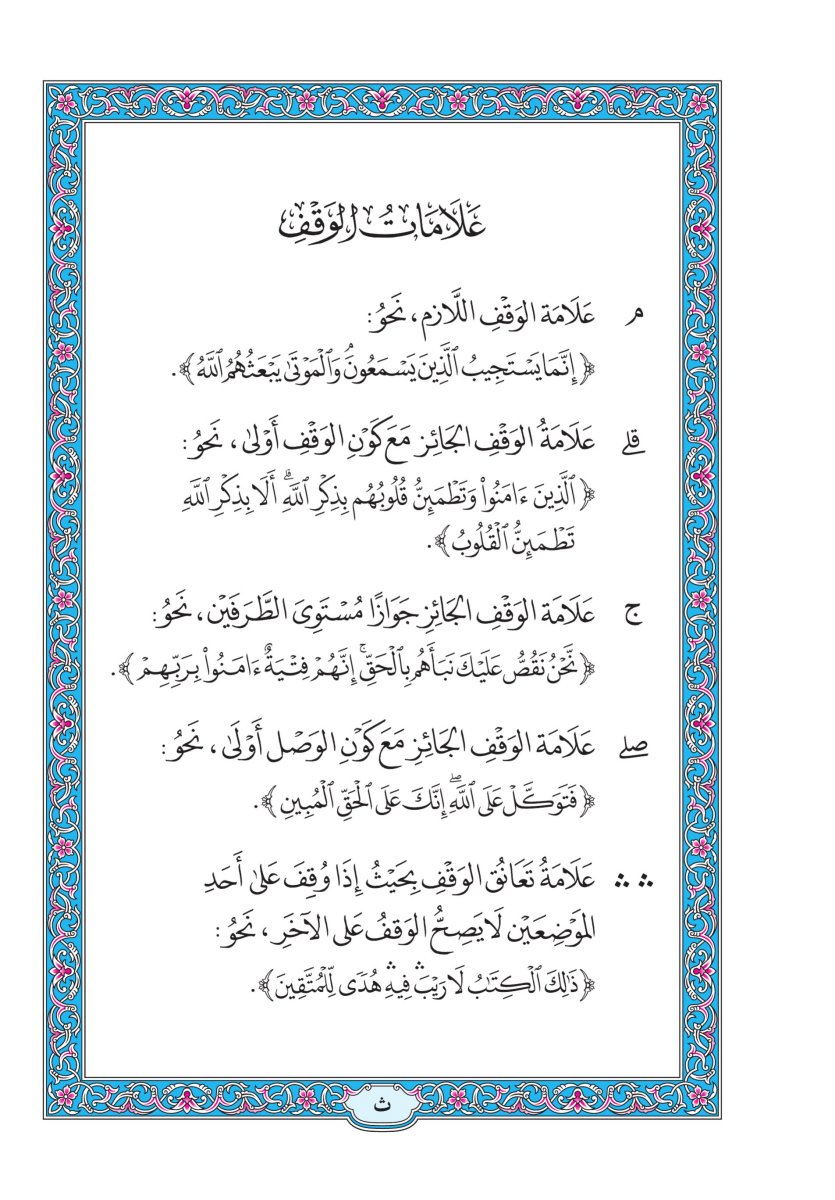 عَلَامَاتُ الوَقْفِ
مـ عَلَامَة الوَقْفِ اللَّازِم، نَحْوُ:
﴿إِنَّمَا يَسْتَجِيبُ ٱلَّذِينَ يَسْمَعُونَۘ وَٱلْمَوْتَىٰ يَبْعَثُهُمُ ٱللَّهُ﴾.
قلے عَلَامَةُ الوَقْفِ الجَائِز مَعَ كَوْنِ الوَقْفِ أَوْلىٰ، نَحْوُ:
﴿ٱلَّذِينَ ءَامَنُوا۟ وَتَطْمَئِنُّ قُلُوبُهُم بِذِكْرِ ٱللَّهِۗ أَلَا بِذِكْرِ ٱللَّهِ
تَطْمَئِنُّ ٱلْقُلُوبُ﴾.
ج عَلَامَة الوَقْفِ الجَائِزِ جَوَازًا مُسْتَوِيَ الطَّرَفَيْن، نَحْوُ:
﴿نَّحْنُ نَقُصُّ عَلَيْكَ نَبَأَهُم بِٱلْحَقِّۚ إِنَّهُمْ فِتْيَةٌ ءَامَنُوا۟ بِرَبِّهِمْ﴾.
صلے عَلَامَة الوَقْفِ الجَائِزِ مَعَ كَوْنِ الوَصْل أَوْلَىٰ، نَحْوُ:
﴿فَتَوَكَّلْ عَلَى ٱللَّهِۖ إِنَّكَ عَلَى ٱلْحَقِّ ٱلْمُبِينِ﴾.
∴ ∴ عَلَامَةُ تَعَانُق الوَقْفِ بِحَيْثُ إِذَا وُقِفَ عَلىٰ أَحَدِ
المَوْضِعَيْن لَا يَصِحُّ الوَقفُ عَلى الآخَرِ، نَحْوُ:
﴿ذَٰلِكَ ٱلْكِتَـٰبُ لَا رَيْبَۛ فِيهِۛ هُدًى لِّلْمُتَّقِينَ﴾.
ث